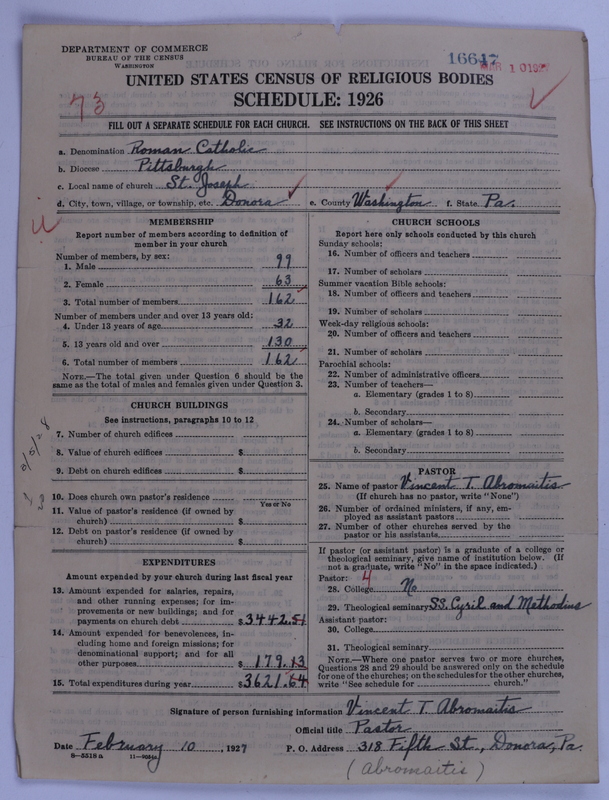 DEPARTMENT OF COMMERCE
BUREAU OF THE CENSUS
WASHINGTON
16647
MAR 10 192
UNITED STATES CENSUS OF RELIGIOUS BODIES
SCHEDULE: 1926
73
FILL OUT A SEPARATE SCHEDULE FOR EACH CHURCH. SEE INSTRUCTIONS ON THE BACK OF THIS SHEET
a. Denomination Roman Catholic
b. Diocese Pittsburgh
c. Local name of church St. Joseph
d. City, town, village, or township, etc. Donora e. County Washington f. State Pa.
MEMBERSHIP
Report number of members according to definition of
member in your church
Number of members, by sex:
1. Male 99
2. Female 63
3. Total number of members 162
Number of members under and over 13 years old:
4. Under 13 years of age 32
5. 13 years old and over 130
6. Total number of members 162
NOTE.—The total given under Question 6 should be
same as the total of males and females given under Question 3.
CHURCH BUILDINGS
See instructions, paragraphs 10 to 12
7. Number of church edifices
8. Value of church edifices $
9. Debt on church edifices $
10. Does church own pastor's residence
Yes or No
11. Value of pastor's residence (if owned by
church) $
12. Debt on pastor's residence (if owned by
church) $
EXPENDITURES
Amount expended by your church during last fiscal year
13. Amount expended for salaries, repairs,
and other running expenses; for im-
provements or new buildings; and for
payments on church debt $3442.51
14. Amount expended for benevolences, in-
cluding home and foreign missions; for
denominational support; and for all
other purposes $ 179.13
15. Total expenditures during year $3621.64
CHURCH SCHOOLS
Report here only schools conducted by this church
Sunday schools:
16. Number of officers and teachers
17. Number of scholars
Summer vacation Bible schools:
18. Number of officers and teachers
19. Number of scholars
Week-day religious schools:
20. Number of officers and teachers
21. Number of scholars
Parochial schools:
22. Number of administrative officers
23. Number of teachers—
a. Elementary (grades 1 to 8)
b. Secondary
24. Number of scholars—
a. Elementary (grades 1 to 8)
b. Secondary
PASTOR
25. Name of pastor Vincent T. Abromaitis
(If church has no pastor, write "None")
26. Number of ordained ministers, if any, em-
ployed as assistant pastors
27. Number of other churches served by the
pastor or his assistants
If pastor (or assistant pastor) is a graduate of a college or
theological seminary, give name of institution below. (If
not a graduate, write "No" in the space indicated.)
Pastor: 4
28. College No
29. Theological seminary SS. Cyril and Methodius
Assistant pastor:
30. College
31. Theological seminary
NOTE.—Where one pastor serves two or more churches,
Questions 28 and 29 should be answered only on the schedule
for one of the churches; on the schedules for the other churches,
write "See schedule for church."
Signature of person furnishing information Vincent T. Abromaitis
Official title Pastor
Date February 10, 1927 P. O. Address 318 Fifth St., Donora, Pa.
8—5518a
(Abromaitis)